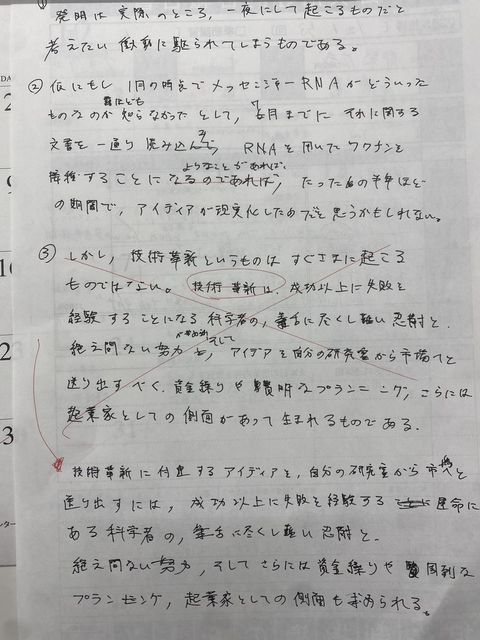 ① 発明は実際のところ、一夜にして起こるものだと
考えたい衝動に駆られてしまうものである。
② 仮にもし 1月の時点でメッセンジャーRNAがどういった
ものなのか知らなかったとして、7月までに それに関する
文書を一通り読み込んで、RNAを用いたワクチンを
ようなことがあれば、
接種することになるのであれば、たった の半年ほど
の期間で、アイディアが現実化したのだと思うかもしれない。
③ しかし、技術革新というものは すぐさまに起こる
ものではない。技術革新は、成功以上に失敗を
経験することになる科学者の、筆舌に尽くし難い忍耐と、
そして
絶え間ない努力と、アイデアを自分の研究室から市場へと
送り出すべく、資金繰りや 明なプランニング、さらには
起業家としての側面があって生まれるものである。
技術革新に付随するアイディアを、自分の研究室から市場へと
送り出すには、成功以上に失敗を経験する 運命に
ある科学者の、筆舌に尽くし難い忍耐と、
絶え間ない努力、そしてさらには資金繰りや 周到な
プランニング、起業家としての側面も求められる。